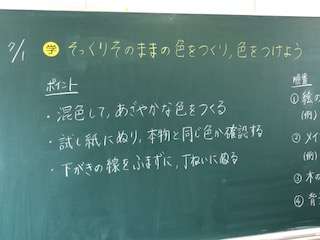 7/1 学 そっくりそのままの色をつくり,色をつけよう
ポイント
・混色して,あざやかな色をつくる
・試し紙にぬり,本物と同じ色か確認する
・下がきの線をふまずに,丁ねいにぬる
順番
① 絵の
(例)
② メイ
(例)
③ 木の
④ 背